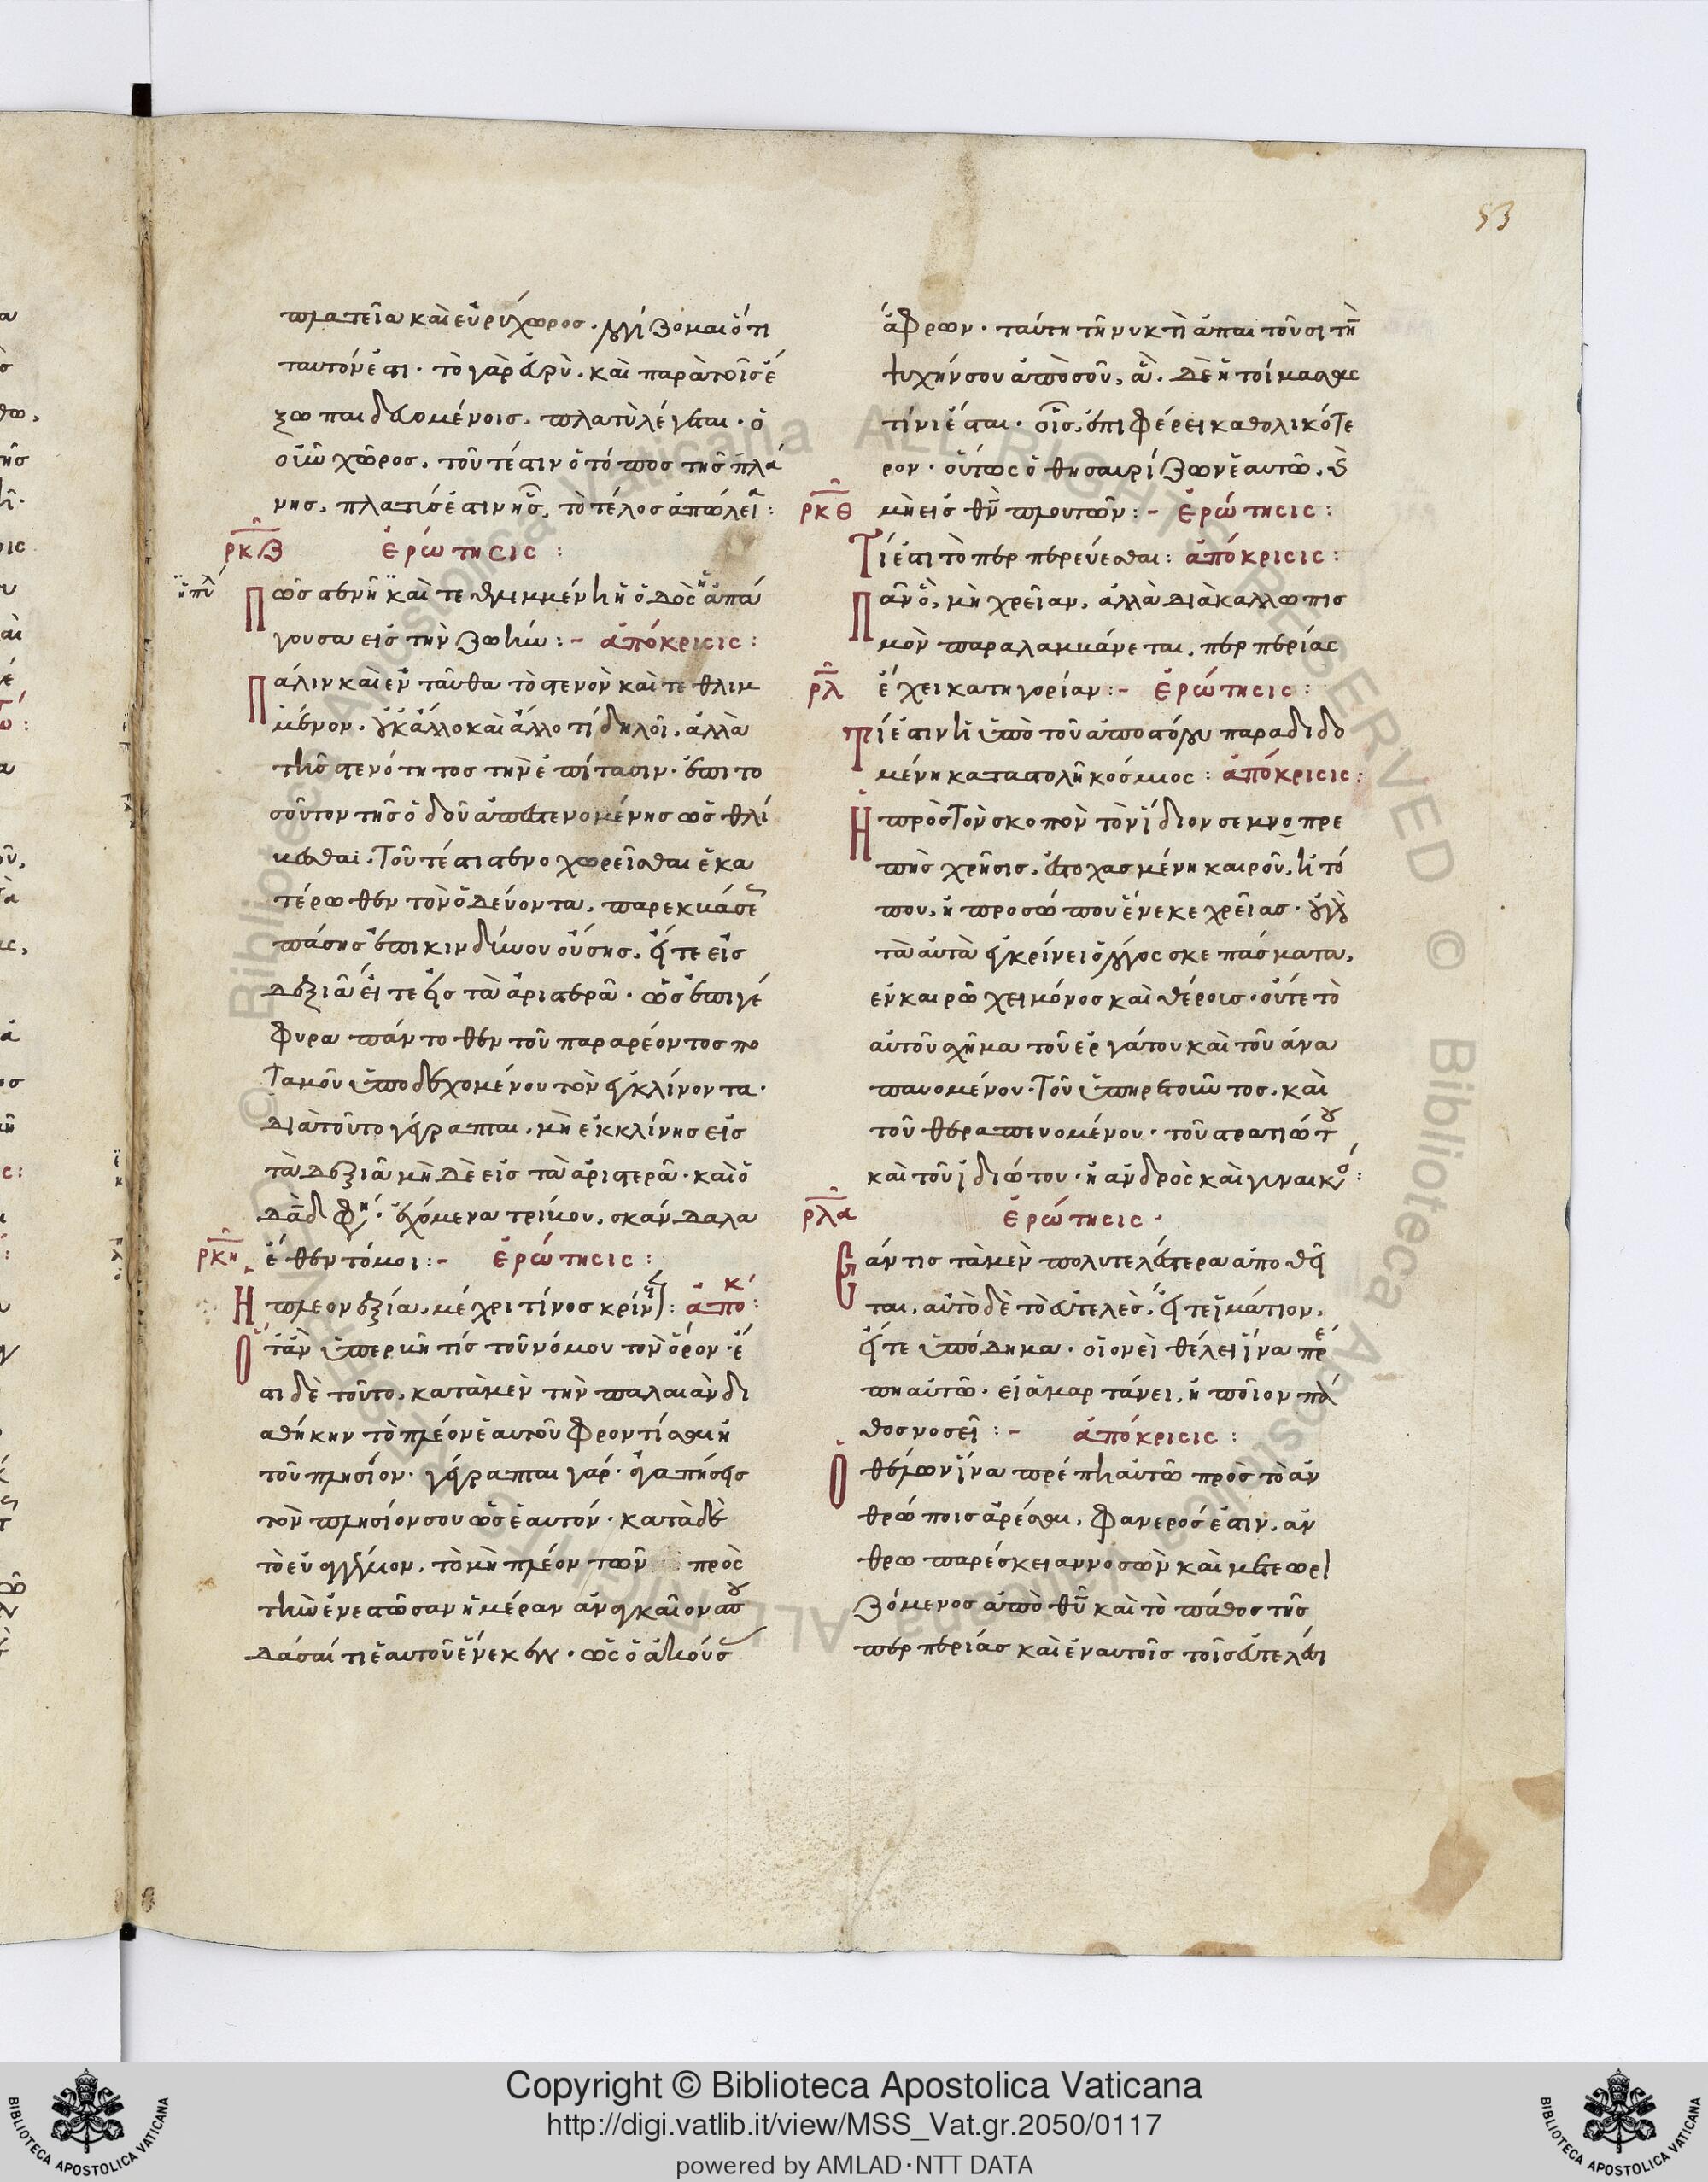 53
πλατεῖα καὶ εὐρύχωρος. λογίζομαι ὅτι
ταυτόν ἐστι· τὸ γὰρ εὐρὺ. καὶ παρὰ τοῖς ἔ
ξω παιδευομένοις. πλατὺ λέγεται· ὁ
οὖν χῶρος. τουτέστιν ὁ τόπος τῆς πλά
νης. πλατύς ἐστιν ἧς τὸ τέλος ἀπώλεια:
ρκζ ἐρώτησις:
Πῶς στενὴ καὶ τεθλιμμένη ἡ ὁδὸς ἡ ἀπά
γουσα εἰς τὴν ζωήν:- ἀπόκρισις:
Πάλιν καὶ ἐνταῦθα τὸ στενὸν καὶ τεθλιμ
μένον. οὐκ ἄλλο καὶ ἄλλο τί δηλοῖ. ἀλλὰ
τῆς στενότητος τὴν ἐπίτασιν. ἐπὶ το
σοῦτον τῆς ὁδοῦ ἀποστενομένης ὡς θλί
βεσθαι. τουτέστι στενοχωρεῖσθαι ἑκα
τέρωθεν τὸν ὁδεύοντα. παρεκβάσεως
πάσης ἐπικινδύνου οὔσης. εἴτε εἰς
δεξιὰ εἴτε εἰς τὰ ἀριστερά. ὡς ἐπὶ γέ
φυρα πάντοθεν τοῦ παραρέοντος πο
ταμοῦ ὑποδεχομένου τὸν ἐκκλίνοντα.
διὰ τοῦτο γέγραπται. μὴ ἐκκλίνῃς εἰς
τὰ δεξιὰ μὴ δὲ εἰς τὰ ἀριστερά. καὶ ὁ
δᾱδ φησί. ἐχόμενα τρίβου. σκάνδαλα
ρκη ἔθεντό μοι:- ἐρώτησις:
Ἡ πλεονεξία. μέχρι τίνος κρίνεται: ἀπόκ:
Ὅταν ὑπερβῇ τίς τοῦ νόμου τὸν ὅρον. ἔ
στι δὲ τοῦτο. κατὰ μὲν τὴν παλαιὰν δι
αθήκην τὸ πλέον ἑαυτοῦ φροντίσαι ἢ
τοῦ πλησίον. γέγραπται γάρ. ἀγαπήσεις
τὸν πλησίον σου ὡς ἑαυτόν. κατὰ δὲ
τὸ εὐαγγέλιον. τὸ μὴ πλέον τῶν πρὸς
τὴν ἐνεστῶσαν ἡμέραν ἀναγκαῖον σπου
δάσαί τι ἑαυτοῦ ἕνεκεν. ὡς ὁ ἀκούσας
ἄφρων. ταύτῃ τῇ νυκτὶ ἀπαιτοῦσι τὴν
ψυχήν σου ἀπὸ σοῦ. ἃ δὲ ἡτοίμασας
τίνι ἔσται. οἷς ἐπιφέρει καθολικότε
ρον. οὕτως ὁ θησαυρίζων ἑαυτῷ. καὶ
ρκθ μὴ εἰς θν̄ πλουτῶν:- ἐρώτησις:
Τί ἐστι τὸ περπερεύεσθαι: ἀπόκρισις:
Πᾶν ὃ. μὴ χρείαν. ἀλλὰ διὰ καλλωπισ
μὸν παραλαμβάνεται. περπερίας
ρλ ἔχει κατηγορίαν:- ἐρώτησις:
Τί ἐστιν ἡ ὑπὸ τοῦ ἀποστόλου παραδιδο
μένη καταστολὴ κόσμιος: ἀπόκρισις:
Ἡ πρὸς τὸν σκοπὸν τὸν ἴδιον σεμνοπρε
πὴς χρῆσις. ἐστοχασμένη καιροῦ. ἢ τό
που. ἢ προσώπου ἕνεκε χρείας. οὐ γὰρ
τὰ αὐτὰ ἐγκρίνει ὁ λόγος σκεπάσματα.
ἐν καιρῷ χειμόνος καὶ θέρους. οὔτε τὸ
αὐτοῦ σχῆμα τοῦ ἐργάτου καὶ τοῦ ἀνα
παυομένου. τοῦ ὑπηρετοῦντος. καὶ
τοῦ θεραπευομένου. τοῦ στρατιώτου
καὶ τοῦ ἰδιώτου. ἢ ἀνδρὸς καὶ γυναικός:
ρλα ἐρώτησις.
Ἐάν τις τὰ μὲν πολυτελέστερα ἀποθῆ
ται. αὐτὸ δὲ τὸ εὐτελὲς. εἴτε ἱμάτιον.
εἴτε ὑπόδημα. οἱονεὶ θέλει ἵνα πρέ
πῃ αὐτῷ. εἰ ἁμαρτάνει. ἢ ποῖον πά
θος νοσεῖ:- ἀπόκρισις:
Ὁ θέλων ἵνα πρέπῃ αὐτῷ πρὸς τὸ ἀν
θρώποις ἀρέσαι. φανερός ἐστιν. ἀν
θρωπαρέσκειαν νοσῶν καὶ μετεωρι
ζόμενος ἀπὸ θῡ καὶ τὸ πάθος τῆς
περπερίας καὶ ἐν αὐτοῖς τοῖς εὐτελέσι
Copyright © Biblioteca Apostolica Vaticana
http://digi.vatlib.it/view/MSS_Vat.gr.2050/0117
powered by AMLAD·NTT DATA